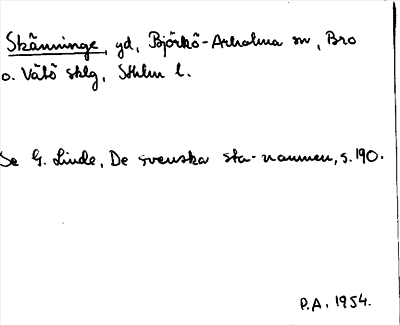 Skänninge, gd, Björkö-Arholma sn, Bro
o. Vätö sklg, Sthlm l.
Se G. Linde, De svenska sta-namnen, s. 190.
P.A. 1954.